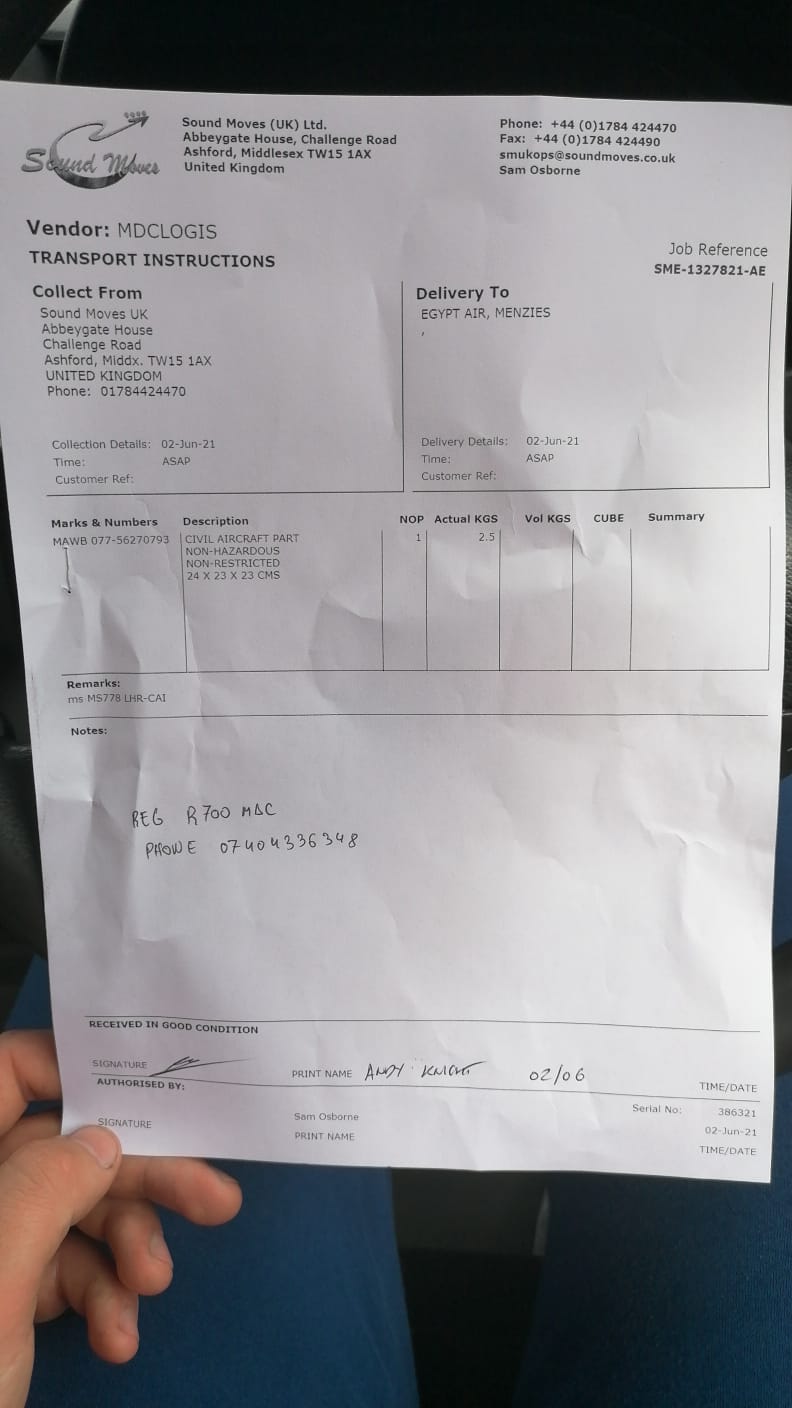 Sound Moves
Sound Moves (UK) Ltd.
Abbeygate House, Challenge Road
Ashford, Middlesex TW15 1AX
United Kingdom
Phone: +44 (0)1784 424470
Fax: +44 (0)1784 424490
smukops@soundmoves.co.uk
Sam Osborne
Vendor: MDCLOGIS
TRANSPORT INSTRUCTIONS
Job Reference
SME-1327821-AE
Collect From
Sound Moves UK
Abbeygate House
Challenge Road
Ashford, Middx. TW15 1AX
UNITED KINGDOM
Phone: 01784424470
Collection Details: 02-Jun-21
Time: ASAP
Customer Ref:
Delivery To
EGYPT AIR, MENZIES
,
Delivery Details: 02-Jun-21
Time: ASAP
Customer Ref:
Marks & Numbers Description NOP Actual KGS Vol KGS CUBE Summary
MAWB 077-56270793 CIVIL AIRCRAFT PART 1 2.5
NON-HAZARDOUS
NON-RESTRICTED
24 X 23 X 23 CMS
Remarks:
ms MS778 LHR-CAI
Notes:
REG R700 MDC
PHONE 07404336348
RECEIVED IN GOOD CONDITION
SIGNATURE PRINT NAME ANDY KNIGHT 02/06 TIME/DATE
AUTHORISED BY:
Serial No: 386321
Sam Osborne 02-Jun-21
SIGNATURE PRINT NAME TIME/DATE